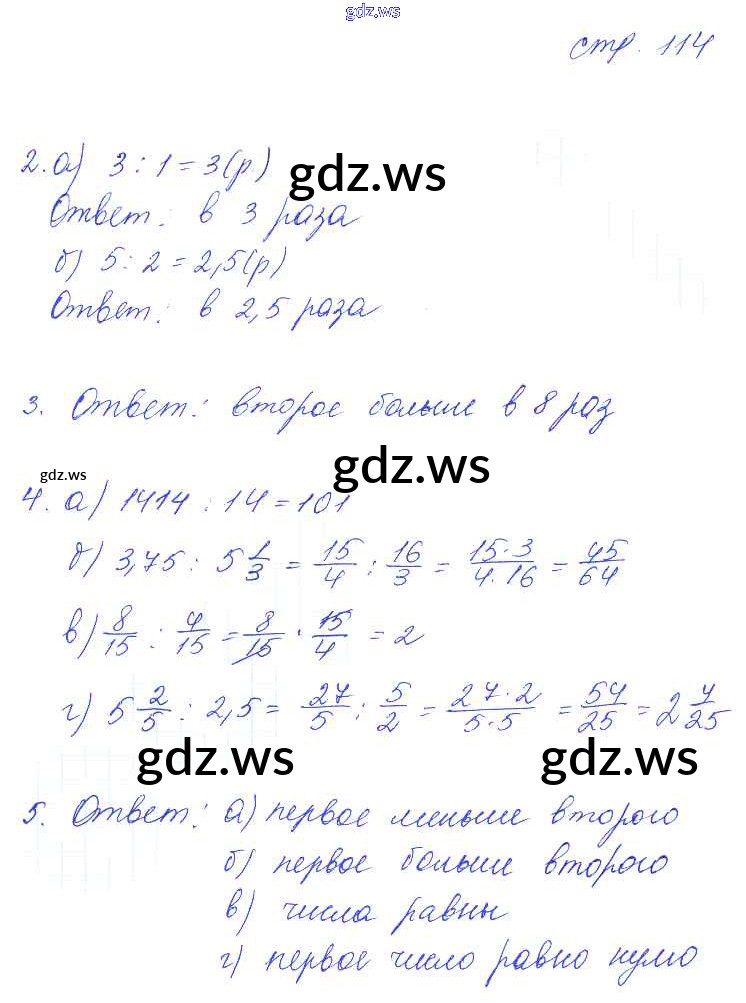 gdz.ws
стр. 114
2. а) 3 : 1 = 3 (р.)
gdz.ws
Ответ: в 3 раза
б) 5 : 2 = 2,5 (р)
Ответ: в 2,5 раза
3. Ответ: второе больше в 8 раз
gdz.ws
gdz.ws
4. а) 1414 : 14 = 101
б) 3,75 : 5 1/3 = 15/4 : 16/3 = 15·3/4·16 = 45/64
в) 8/15 : 4/15 = 8/15 · 15/4 = 2
г) 5 2/5 : 2,5 = 27/5 : 5/2 = 27·2/5·5 = 54/25 = 2 4/25
gdz.ws
gdz.ws
5. Ответ: а) первое меньше второго
б) первое больше второго
в) числа равны
г) первое число равно нулю